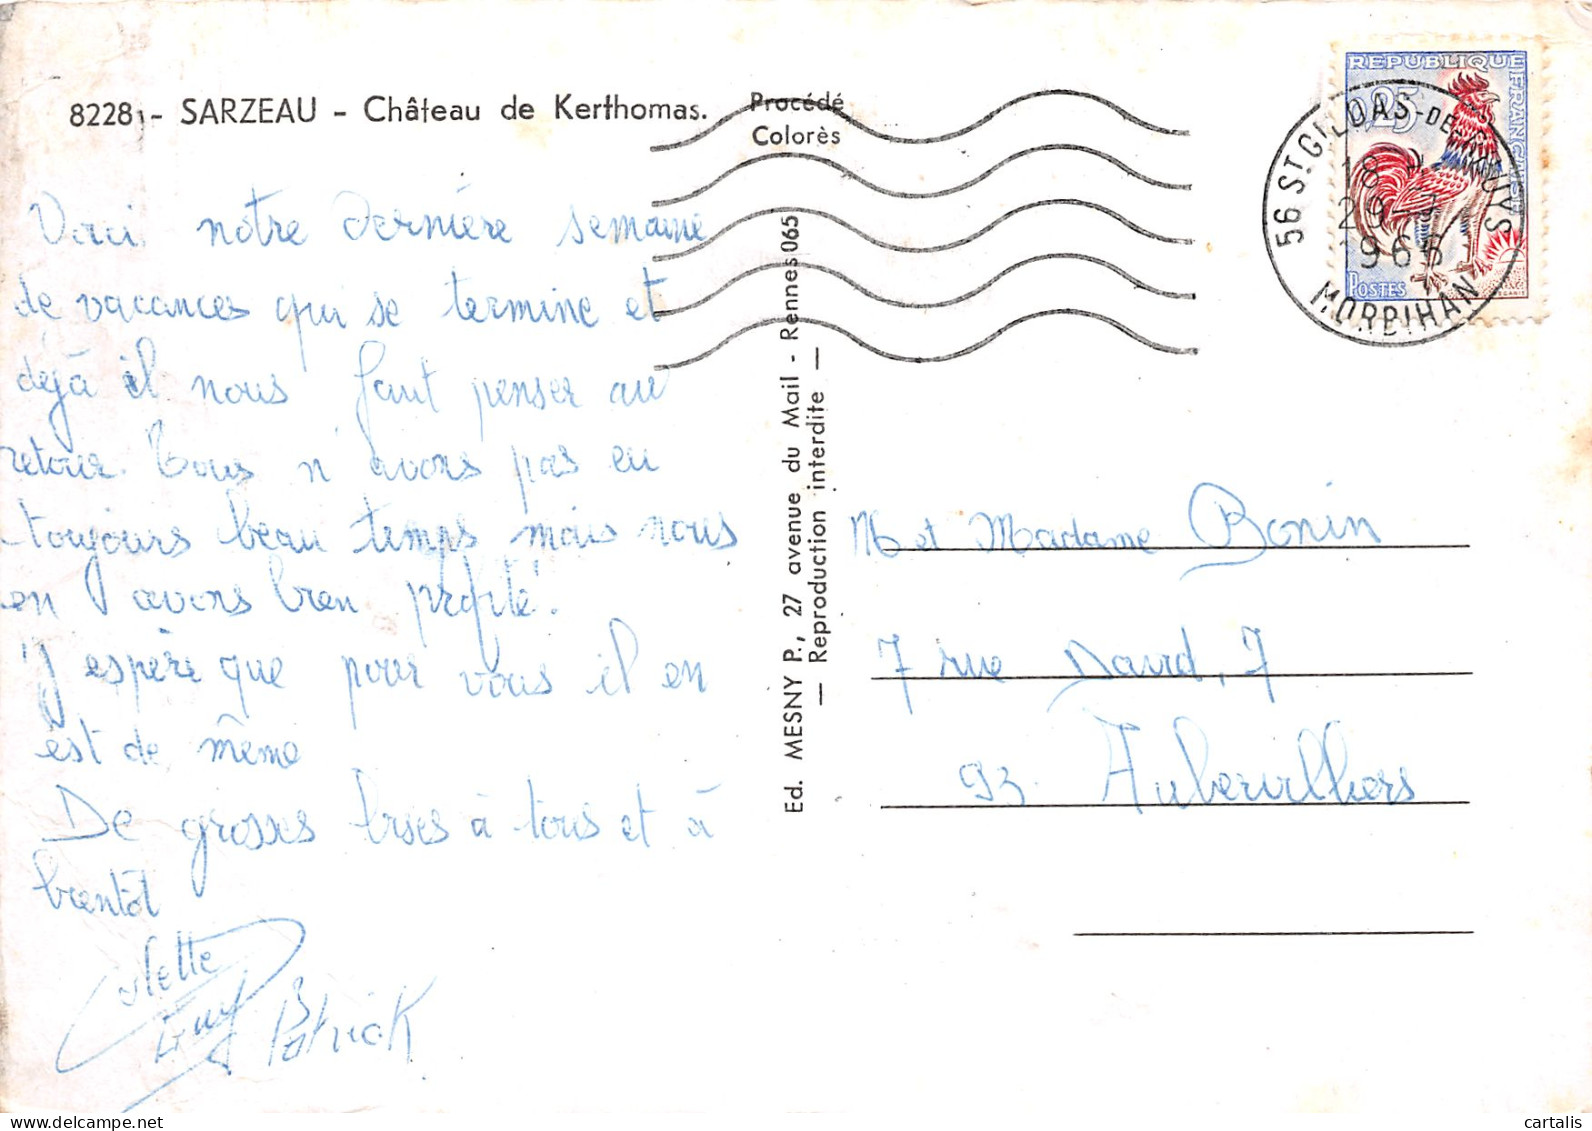 8228 - SARZEAU - Château de Kerthomas.
Procédé
Colorès
Voici notre dernière semaine
de vacances qui se termine et
déjà il nous faut penser au
retour. Nous n'avons pas eu
toujours beau temps mais nous
en avons bien profité.
J'espère que pour vous il en
est de même
De grosses bises à tous et à
bientôt
Colette
Guy
Patrick
Ed. MESNY P., 27 avenue du Mail - Rennes 065
— Reproduction interdite —
REPUBLIQUE FRANÇAISE
0,25
POSTES
56 ST GILDAS-DE-RHUYS
18 H
29-7
1966
MORBIHAN
M et Madame Bonin
7 rue David, 7
93. Aubervilliers
cartalis